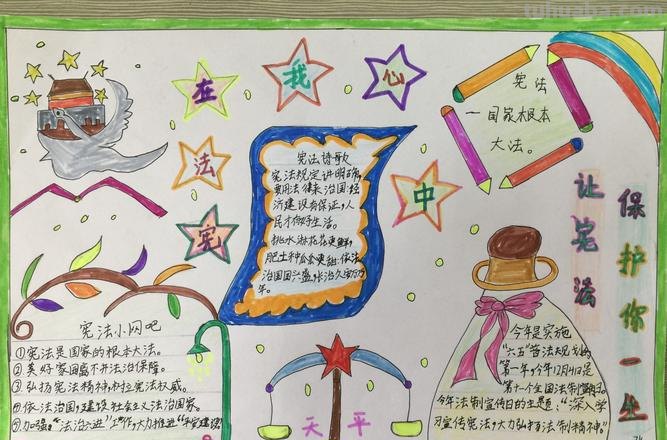 tuhuaba.com
宪法在我心中
宪法
一国家根本
大法。
让宪法
保护你一生
宪法诗歌
宪法规定讲明确,
要用法律来治国;经
济建设有保证,人
民才有好生活。
挑水淋花花更鲜,
肥土种瓜瓜更甜;依法
治国国兴盛,长治久安万万
年。
宪法小网吧
①宪法是国家的根本大法。
②美好家园离不开法治保障。
③弘扬宪法精神,树立宪法权威。
④依法治国,建设社会主义法治国家。
天平
今年是实施
“六五”普法规划的
第一年,今年12月4日是
第十一个全国法制宣传日。
今年法制宣传日的主题:“深入学
习宣传宪法,大力弘扬法制精神”